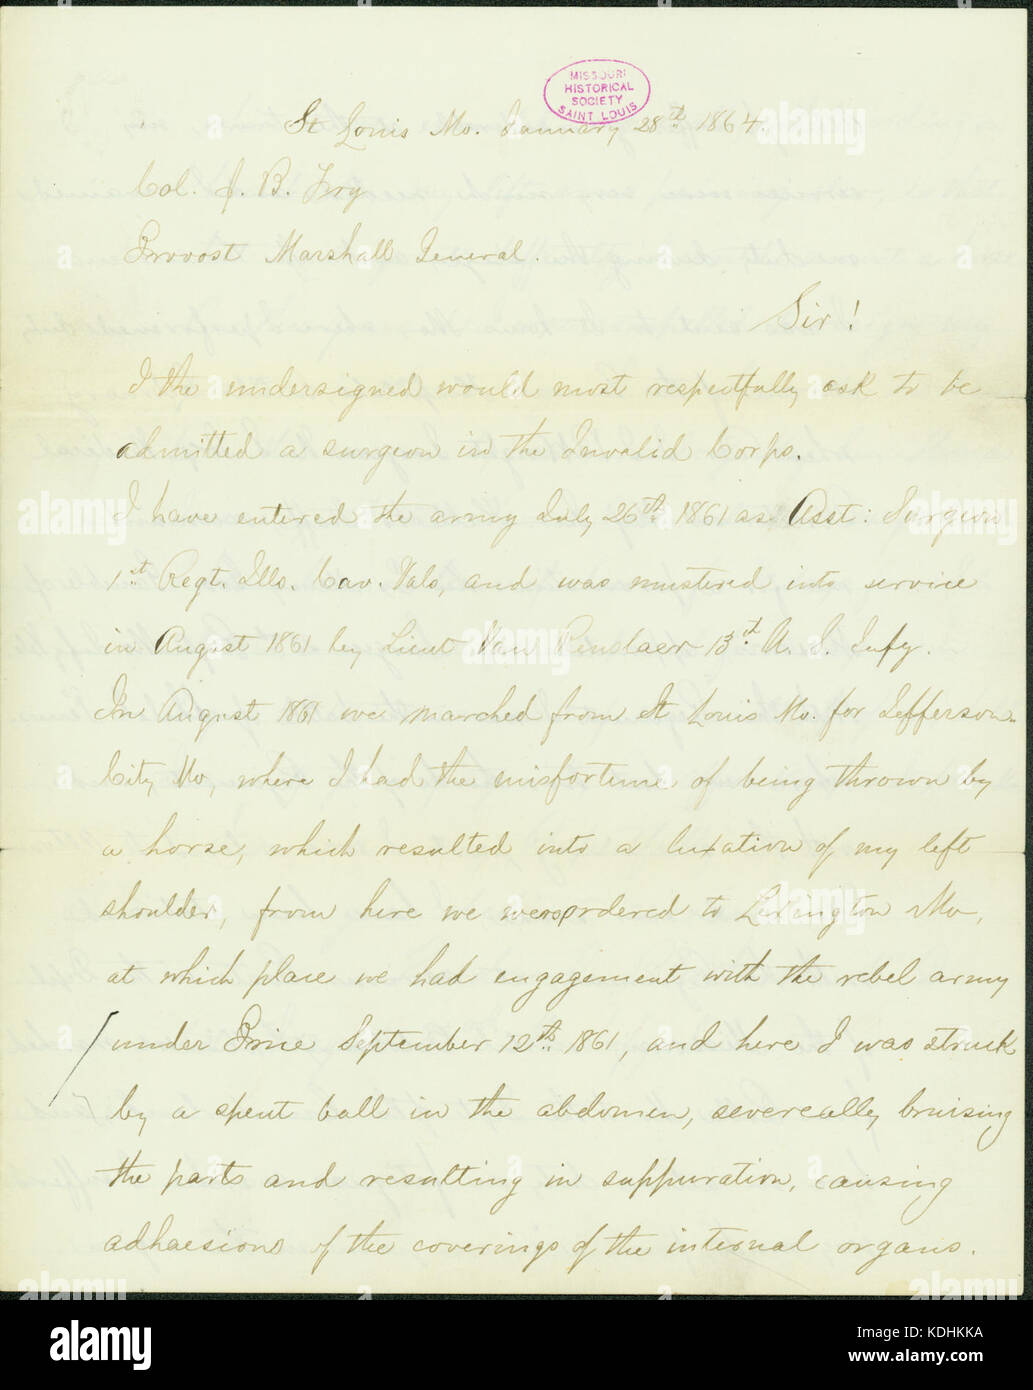 MISSOURI
HISTORICAL
SOCIETY
SAINT LOUIS
St Louis Mo. January 28th 1864.
Col. J. B. Fry
Provost Marshall General.
Sir!
I the undersigned would most respectfully ask to be
admitted a surgeon in the Invalid Corps.
I have entered the army July 26th 1861 as Asst: Surgeon
1st Regt. Ills. Cav. Vols, and was mustered into service
in August 1861 by Lieut Van Renslaer 13th U. S. Infy.
In August 1861 we marched from St Louis Mo. for Jefferson-
City Mo, where I had the misfortune of being thrown by
a horse, which resulted into a luxation of my left
shoulder, from here we were ordered to Lexington Mo,
at which place we had engagement with the rebel army
under Price September 12th 1861, and here I was struck
by a spent ball in the abdomen, severeally bruising
the parts and resulting in suppuration, causing
adhaesions of the coverings of the internal organs.
alamy
Image ID: KDHKKA
www.alamy.com